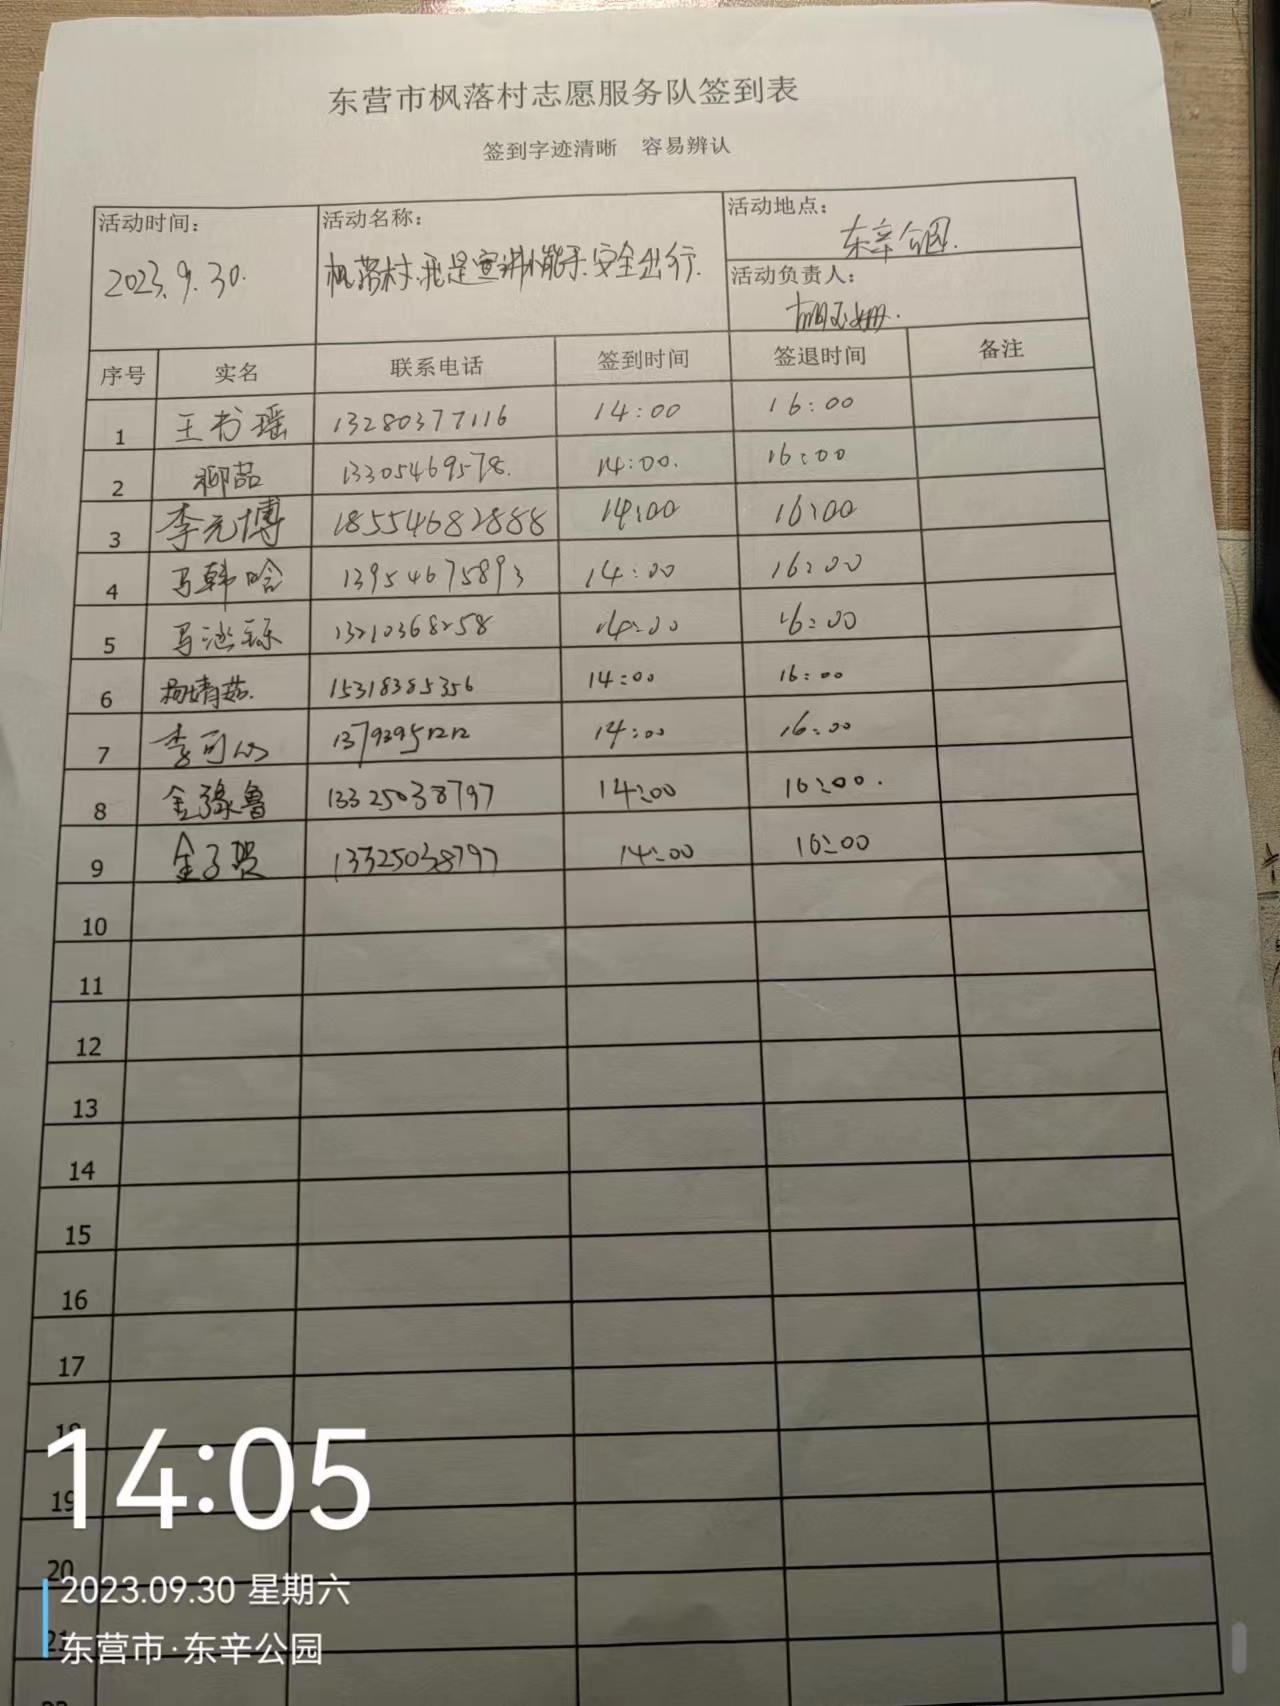 东营市枫落村志愿服务队签到表
签到字迹清晰 容易辨认
活动时间: 活动名称: 活动地点:
2023.9.30. 枫落村.我是宣讲小能手.安全出行. 东辛公园.
活动负责人:
序号 实名 联系电话 签到时间 签退时间 备注
1 王书瑶 13280377116 14:00 16:00
2 柳喆 13305469578. 14:00. 16:00
3 李元博 18554682888 14:00 16:00
4 马韩晗 13954675893 14:00 16:00
5 马 13210368258 14:00 16:00
6 杨婧茹. 15318385356 14:00 16:00
7 李可心 13793951212 14:00 16:00
8 金鲁 13325038797 14:00 16:00.
9 金子贺 13325038797 14:00 16:00
10
11
12
13
14
15
16
17
18
19
20
21
14:05
2023.09.30 星期六
东营市·东辛公园